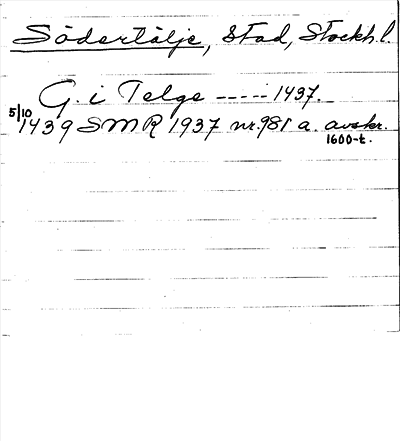 Södertälje, Stad, Stockh.l.
G. i Telge ----- 1437.
5/10 1439 SMR 1937 nr. 981 a. avskr.
1600-t.